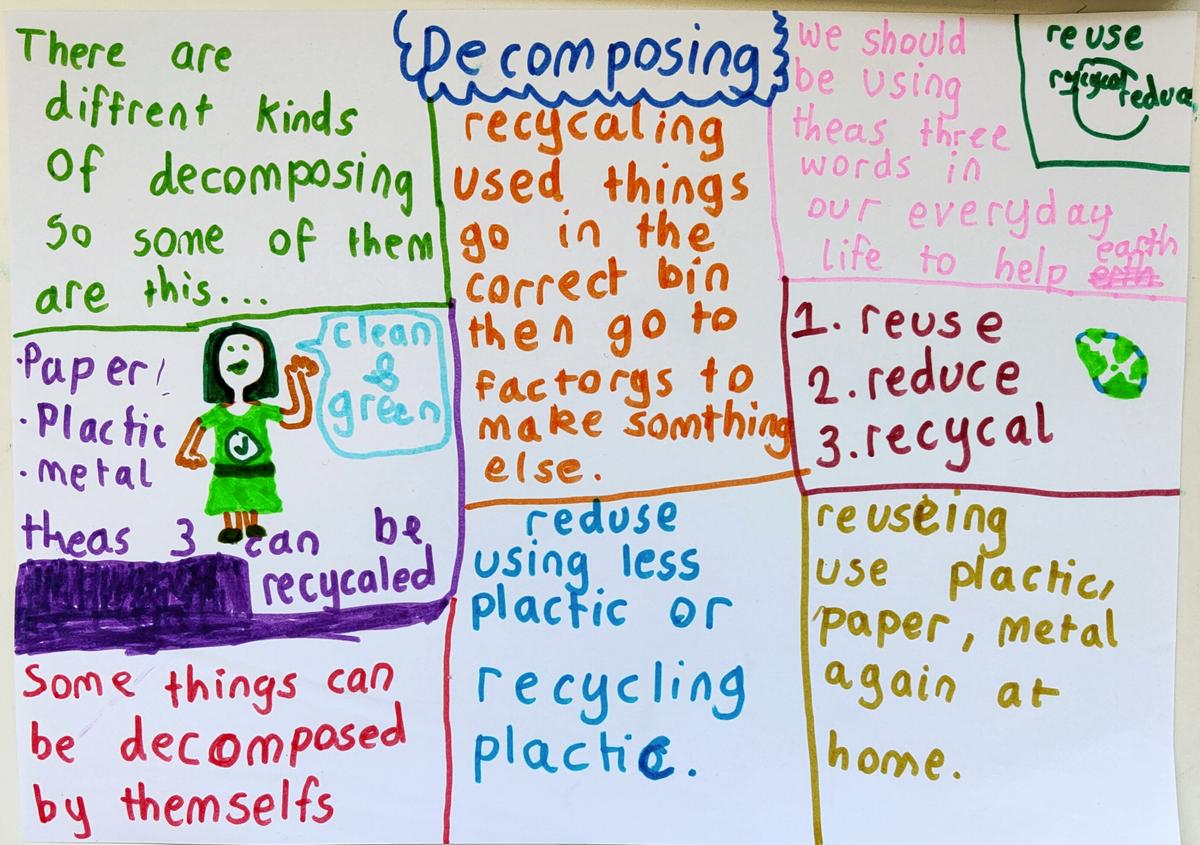 Decomposing
There are
diffrent kinds
of decomposing
so some of them
are this...
.Paper!
.Plactic
.metal
clean
&
green
J
theas 3 can be
recycaled
Some things can
be decomposed
by themselfs
recycaling
used things
go in the
correct bin
then go to
factorys to
make somthing
else.
reduse
using less
plactic or
recycling
plactic.
we should
be using
theas three
words in
our everyday
life to help earth
reuse
recycal reduce
1. reuse
2. reduce
3. recycal
reuseing
use plactic,
paper, metal
again at
home.